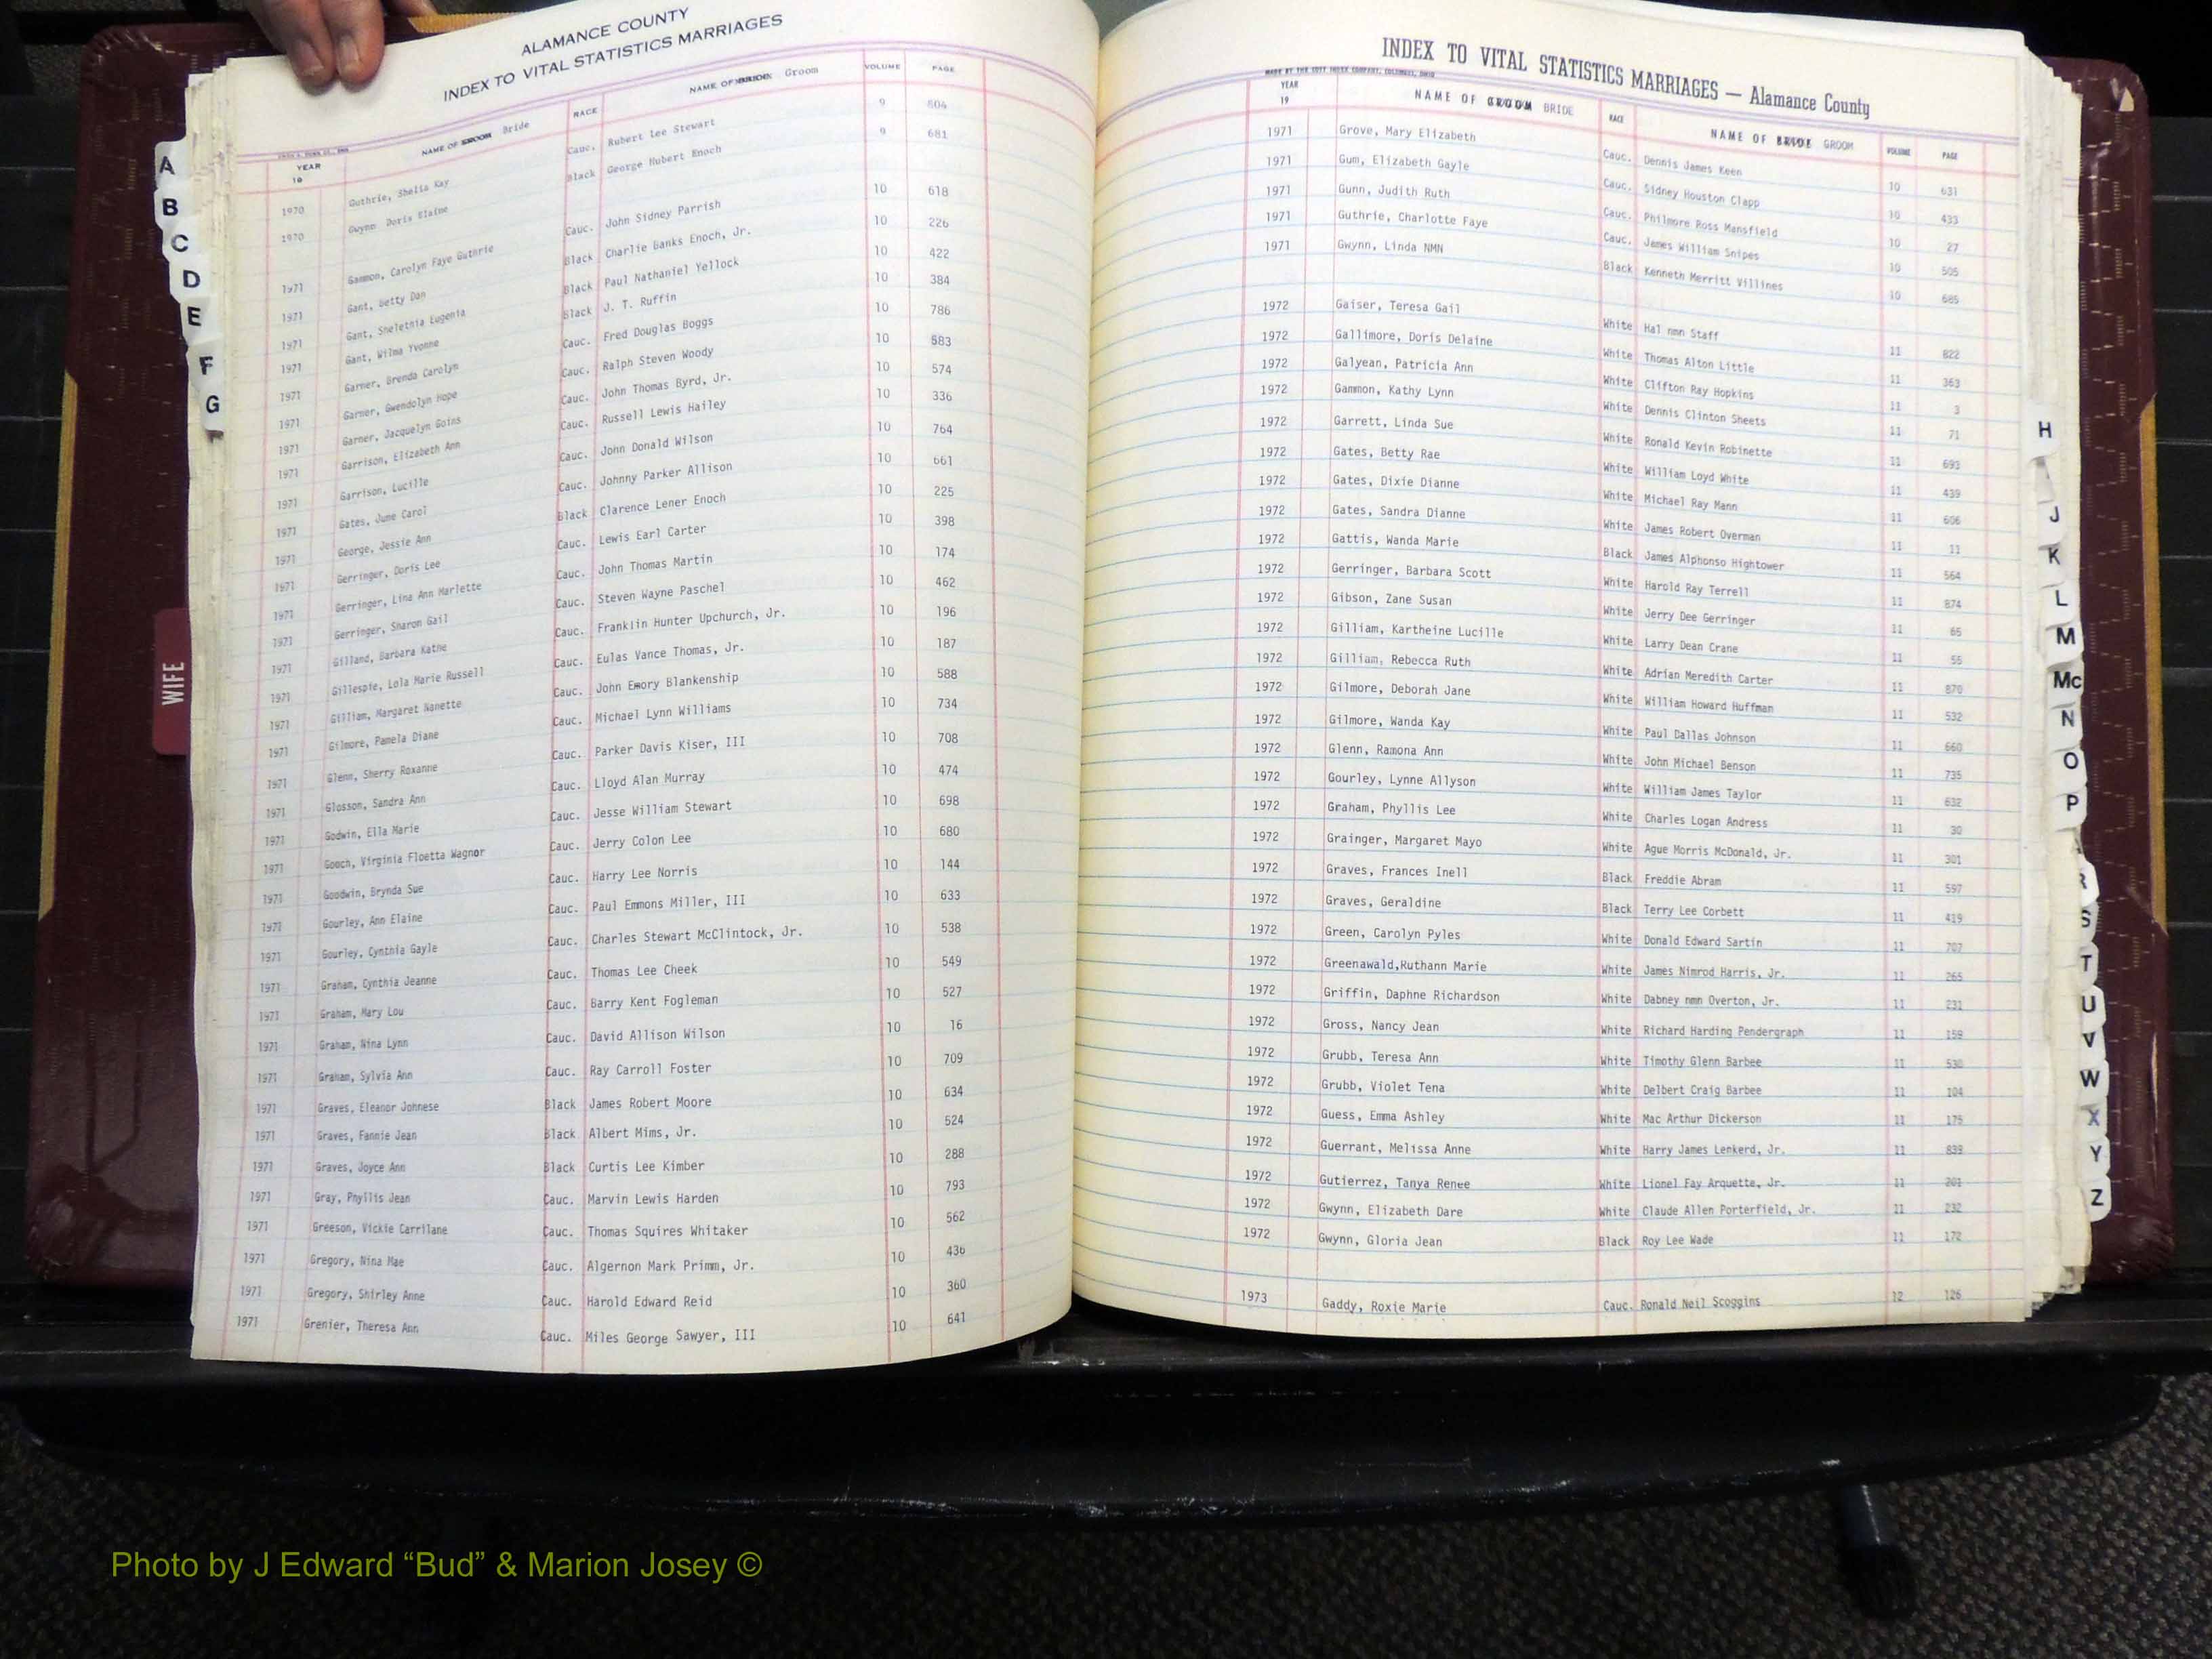 ALAMANCE COUNTY
INDEX TO VITAL STATISTICS MARRIAGES
YEAR 19 NAME OF GROOM Bride RACE NAME OF BRIDE Groom VOLUME PAGE
1970 Guthrie, Shelia Kay Cauc. Robert Lee Stewart 9 604
1970 Gwynn Doris Elaine Black George Hubert Enoch 9 681
1971 Gammon, Carolyn Faye Guthrie Cauc. John Sidney Parrish 10 618
1971 Gant, Betty Dan Black Charlie Banks Enoch, Jr. 10 226
1971 Gant, Shelethia Eugenia Black Paul Nathaniel Yellock 10 422
1971 Gant, Wilma Yvonne Black J. T. Ruffin 10 384
1971 Garner, Brenda Carolyn Cauc. Fred Douglas Boggs 10 786
1971 Garner, Gwendolyn Hope Cauc. Ralph Steven Woody 10 583
1971 Garner, Jacquelyn Goins Cauc. John Thomas Byrd, Jr. 10 574
1971 Garrison, Elizabeth Ann Cauc. Russell Lewis Hailey 10 336
1971 Garrison, Lucille Cauc. John Donald Wilson 10 764
1971 Gates, June Carol Cauc. Johnny Parker Allison 10 661
1971 George, Jessie Ann Black Clarence Lener Enoch 10 225
1971 Gerringer, Doris Lee Cauc. Lewis Earl Carter 10 398
1971 Gerringer, Lina Ann Marlette Cauc. John Thomas Martin 10 174
1971 Gerringer, Sharon Gail Cauc. Steven Wayne Paschel 10 462
1971 Gilland, Barbara Kathe Cauc. Franklin Hunter Upchurch, Jr. 10 196
1971 Gillespie, Lola Marie Russell Cauc. Eulas Vance Thomas, Jr. 10 187
1971 Gilliam, Margaret Nanette Cauc. John Emory Blankenship 10 588
1971 Gilmore, Pamela Diane Cauc. Michael Lynn Williams 10 734
1971 Glenn, Sherry Roxanne Cauc. Parker Davis Kiser, III 10 708
1971 Glosson, Sandra Ann Cauc. Lloyd Alan Murray 10 474
1971 Godwin, Ella Marie Cauc. Jesse William Stewart 10 698
1971 Gooch, Virginia Floetta Wagnor Cauc. Jerry Colon Lee 10 680
1971 Goodwin, Brynda Sue Cauc. Harry Lee Norris 10 144
1971 Gourley, Ann Elaine Cauc. Paul Emmons Miller, III 10 633
1971 Gourley, Cynthia Gayle Cauc. Charles Stewart McClintock, Jr. 10 538
1971 Graham, Cynthia Jeanne Cauc. Thomas Lee Cheek 10 549
1971 Graham, Mary Lou Cauc. Barry Kent Fogleman 10 527
1971 Graham, Nina Lynn Cauc. David Allison Wilson 10 16
1971 Graham, Sylvia Ann Cauc. Ray Carroll Foster 10 709
1971 Graves, Eleanor Johnese Black James Robert Moore 10 634
1971 Graves, Fannie Jean Black Albert Mims, Jr. 10 524
1971 Graves, Joyce Ann Black Curtis Lee Kimber 10 288
1971 Gray, Phyllis Jean Cauc. Marvin Lewis Harden 10 793
1971 Greeson, Vickie Carrilane Cauc. Thomas Squires Whitaker 10 562
1971 Gregory, Nina Mae Cauc. Algernon Mark Primm, Jr. 10 436
1971 Gregory, Shirley Anne Cauc. Harold Edward Reid 10 360
1971 Grenier, Theresa Ann Cauc. Miles George Sawyer, III 10 641
A
B
C
D
E
F
G
WIFE
INDEX TO VITAL STATISTICS MARRIAGES — Alamance County
YEAR 19 NAME OF GROOM BRIDE RACE NAME OF BRIDE GROOM VOLUME PAGE
1971 Grove, Mary Elizabeth Cauc. Dennis James Keen 10 631
1971 Gum, Elizabeth Gayle Cauc. Sidney Houston Clapp 10 433
1971 Gunn, Judith Ruth Cauc. Philmore Ross Mansfield 10 27
1971 Guthrie, Charlotte Faye Cauc. James William Snipes 10 505
1971 Gwynn, Linda NMN Black Kenneth Merritt Villines 10 685
1972 Gaiser, Teresa Gail White Hal nmn Staff 11 822
1972 Gallimore, Doris Delaine White Thomas Alton Little 11 363
1972 Galyean, Patricia Ann White Clifton Ray Hopkins 11 3
1972 Gammon, Kathy Lynn White Dennis Clinton Sheets 11 71
1972 Garrett, Linda Sue White Ronald Kevin Robinette 11 693
1972 Gates, Betty Rae White William Loyd White 11 439
1972 Gates, Dixie Dianne White Michael Ray Mann 11 606
1972 Gates, Sandra Dianne White James Robert Overman 11 11
1972 Gattis, Wanda Marie Black James Alphonso Hightower 11 564
1972 Gerringer, Barbara Scott White Harold Ray Terrell 11 874
1972 Gibson, Zane Susan White Jerry Dee Gerringer 11 65
1972 Gilliam, Kartheine Lucille White Larry Dean Crane 11 56
1972 Gilliam, Rebecca Ruth White Adrian Meredith Carter 11 870
1972 Gilmore, Deborah Jane White William Howard Huffman 11 532
1972 Gilmore, Wanda Kay White Paul Dallas Johnson 11 660
1972 Glenn, Ramona Ann White John Michael Benson 11 735
1972 Gourley, Lynne Allyson White William James Taylor 11 632
1972 Graham, Phyllis Lee White Charles Logan Andress 11 30
1972 Grainger, Margaret Mayo White Ague Morris McDonald, Jr. 11 301
1972 Graves, Frances Inell Black Freddie Abram 11 597
1972 Graves, Geraldine Black Terry Lee Corbett 11 419
1972 Green, Carolyn Pyles White Donald Edward Sartin 11 707
1972 Greenawald,Ruthann Marie White James Nimrod Harris, Jr. 11 265
1972 Griffin, Daphne Richardson White Dabney nmn Overton, Jr. 11 231
1972 Gross, Nancy Jean White Richard Harding Pendergraph 11 159
1972 Grubb, Teresa Ann White Timothy Glenn Barbee 11 530
1972 Grubb, Violet Tena White Delbert Craig Barbee 11 104
1972 Guess, Emma Ashley White Mac Arthur Dickerson 11 175
1972 Guerrant, Melissa Anne White Harry James Lenkerd, Jr. 11 839
1972 Gutierrez, Tanya Renee White Lionel Fay Arquette, Jr. 11 201
1972 Gwynn, Elizabeth Dare White Claude Allen Porterfield, Jr. 11 232
1972 Gwynn, Gloria Jean Black Roy Lee Wade 11 172
1973 Gaddy, Roxie Marie Cauc. Ronald Neil Scoggins 12 126
H
I
J
K
L
M
Mc
N
O
P
R
S
T
U
V
W
X
Y
Z
Photo by J Edward “Bud” & Marion Josey ©